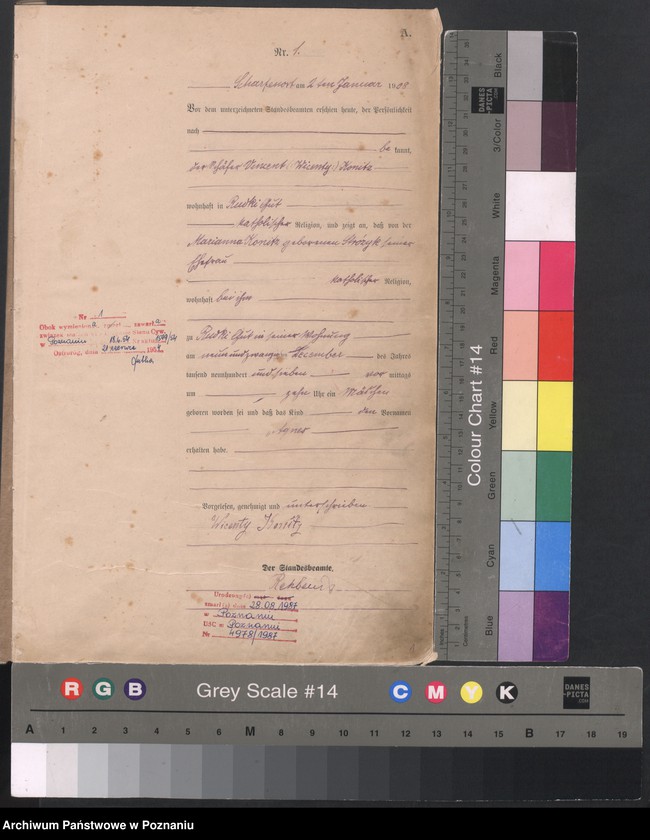 A.
Nr. 1.
Scharfenort am 2ten Januar 1908
Vor dem unterzeichneten Standesbeamten erschien heute, der Persönlichkeit
nach
be kannt,
der Schäfer Vincent (Wicenty) Konitz
wohnhaft in Rudki Gut
katholischer Religion, und zeigte an, daß von der
Marianna Konitz geborenen Stróżyk seiner
Ehefrau
katholischer Religion,
wohnhaft bei ihm
zu Rudki Gut in seiner Wohnung
am neunundzwanzigsten Dezember des Jahres
tausend neunhundert und sieben vor mittags
um zehn Uhr ein Mädchen
geboren worden sei und daß das Kind den Vornamen
Agnes
erhalten habe.
Vorgelesen, genehmigt und unterschrieben
Wicenty Konitz
Der Standesbeamte.
Nr 1
Obok wymieniona zawarła
związek Stanu Cyw.
w Poznaniu
Ostroróg, dnia 21 czerwca
Urodzony(a)
zmarł(a) dnia 28.08.1987
w Poznaniu
USC w Poznaniu
Nr 4978/1987
DANES
-PICTA
.COM
Colour Chart #14
Black
3/Color
White
Magenta
Red
Yellow
Green
Cyan
Blue
Inches
Centimetres
R G B Grey Scale #14 C M Y K
DANES
-PICTA
.COM
A 1 2 3 4 5 6 M 8 9 10 11 12 13 14 15 B 17 18 19
Archiwum Państwowe w Poznaniu